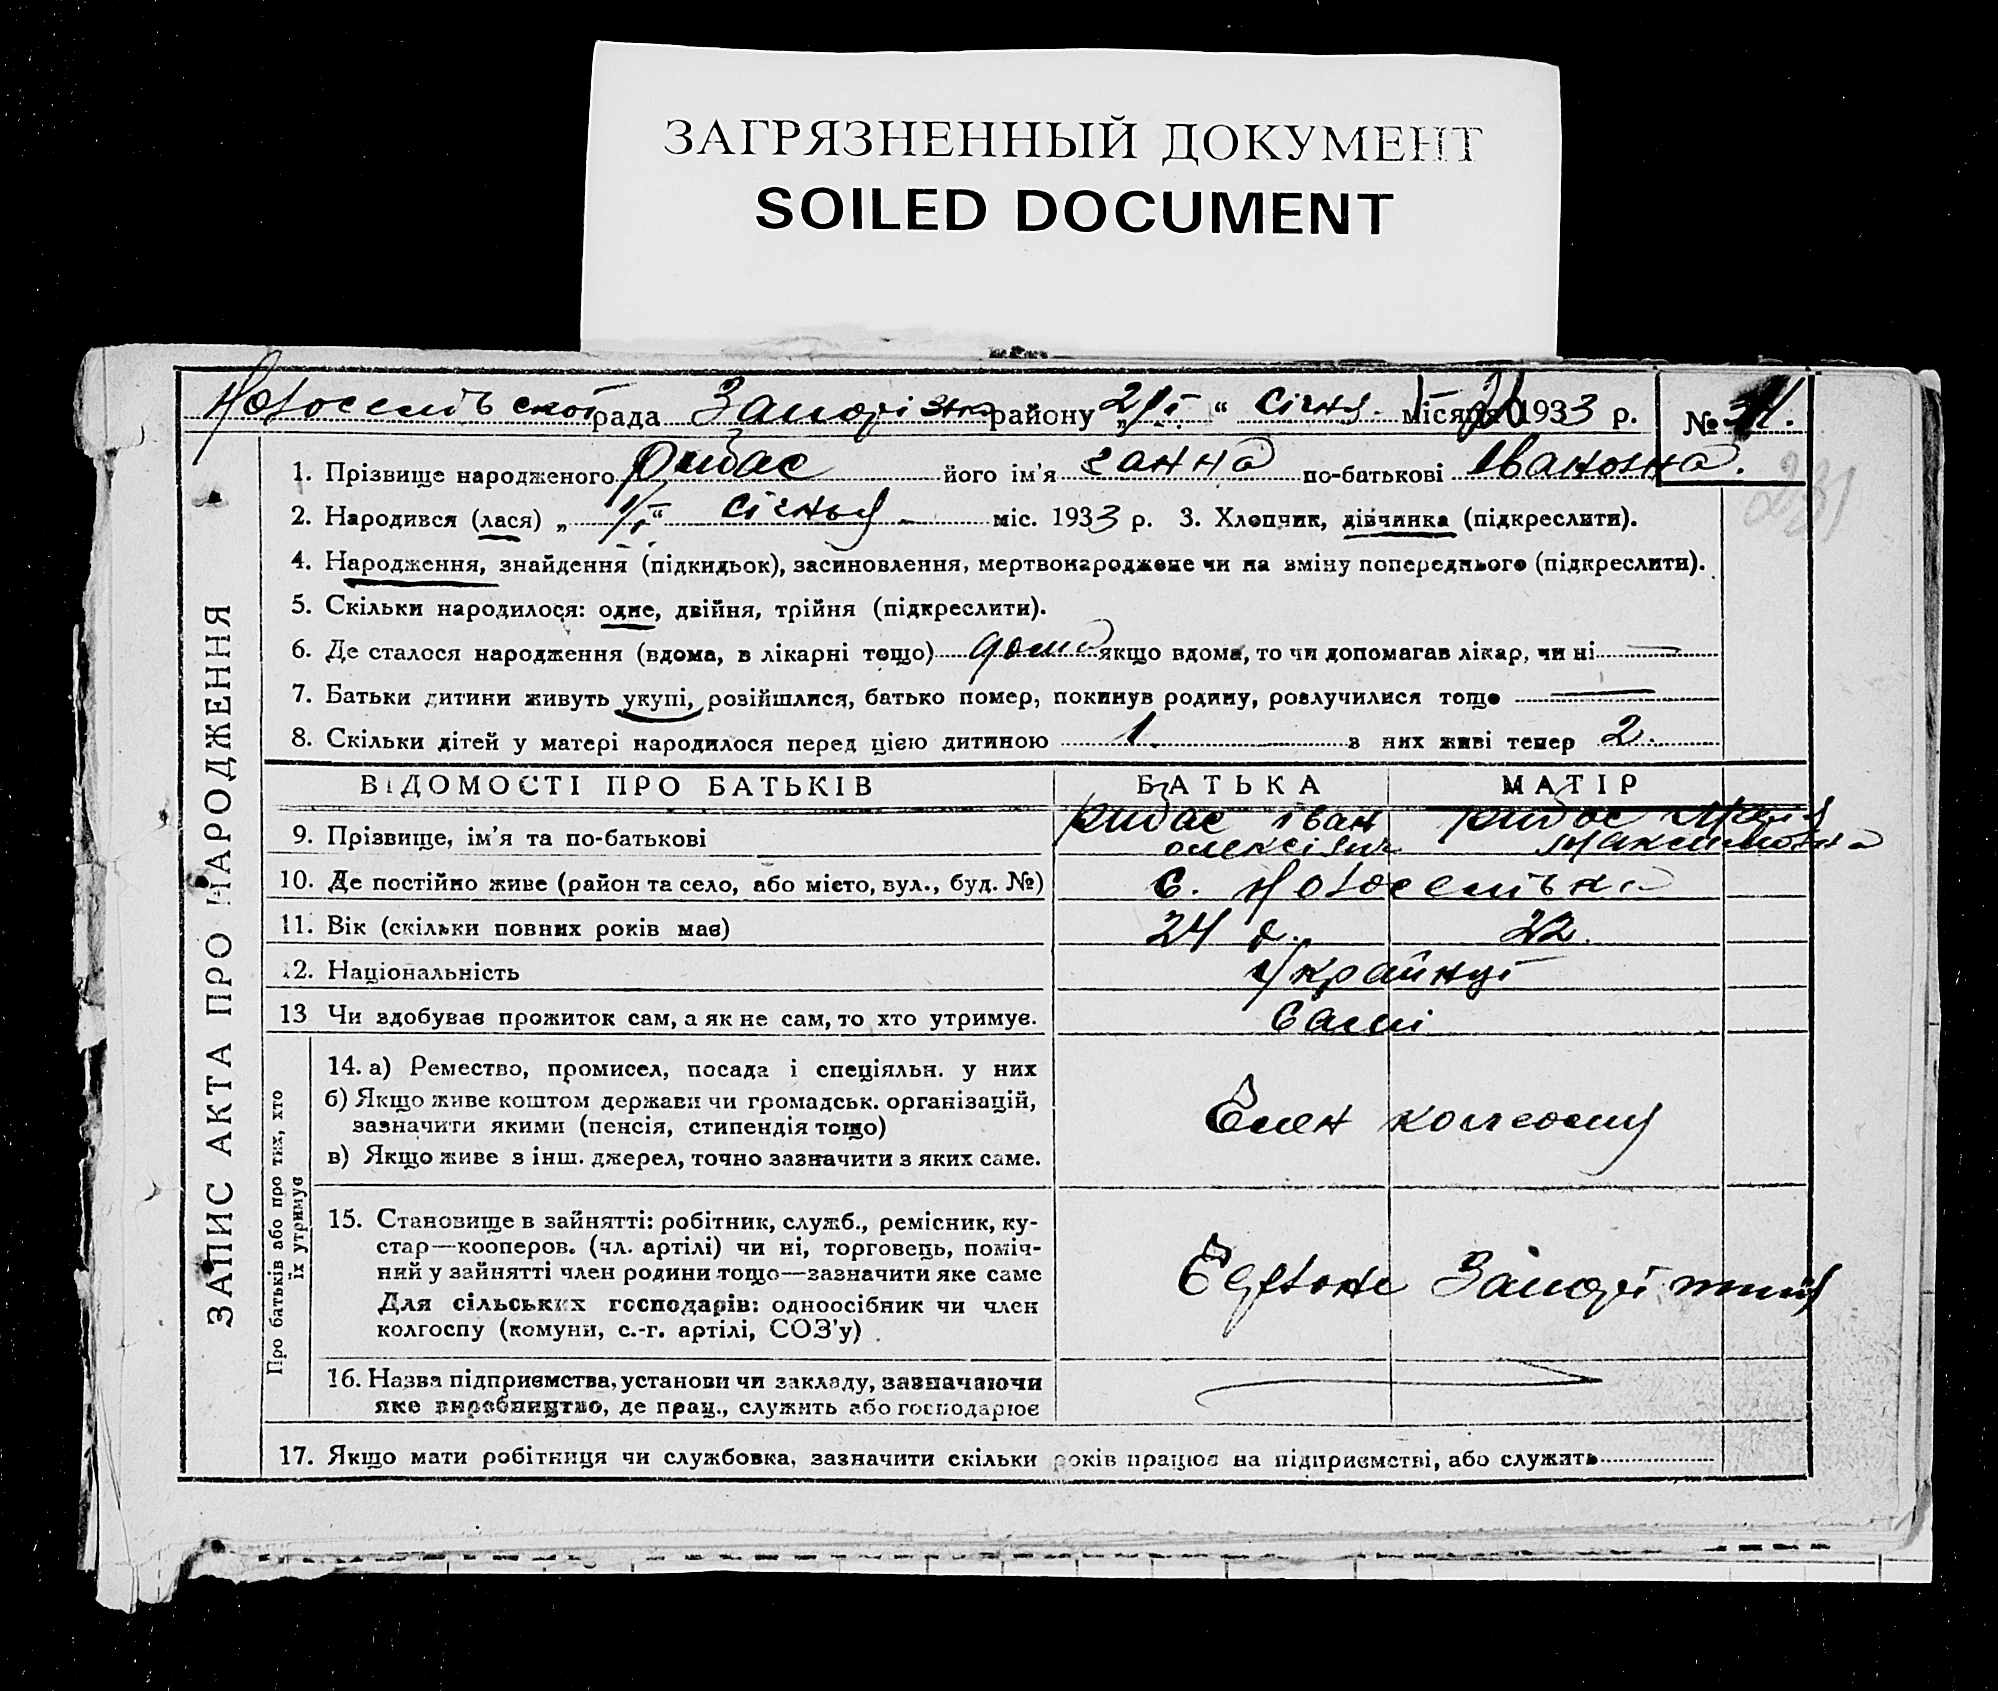 ЗАГРЯЗНЕННЫЙ ДОКУМЕНТ
SOILED DOCUMENT
рада району 2/І „ “ січня місяця 1933 р. №
1. Прізвище народженого Рибас його ім'я Ганна по-батькові Івановна.
2. Народився (лася) „ 1/І “ січня міс. 1933 р. 3. Хлопчик, дівчинка (підкреслити).
4. Народження, знайдення (підкидьок), засиновлення, мертвонароджене чи на зміну попереднього (підкреслити).
5. Скільки народилося: одне, двійня, трійня (підкреслити).
6. Де сталося народження (вдома, в лікарні тощо) дома якщо вдома, то чи допомагав лікар, чи ні —
7. Батьки дитини живуть укупі, розійшлися, батько помер, покинув родину, розлучилися тощо —
8. Скільки дітей у матері народилося перед цією дитиною 1 з них живі тепер 2.
ВІДОМОСТІ ПРО БАТЬКІВ БАТЬКА МАТІР
9. Прізвище, ім'я та по-батькові Рибас Іван Рибас
Максимовна
10. Де постійно живе (район та село, або місто, вул., буд. №) с. Новоселівка
11. Вік (скільки повних років має) 24 р. 22.
12. Національність Українці
13 Чи здобуває прожиток сам, а як не сам, то хто утримує. Самі
14. а) Ремество, промисел, посада і спеціяльн. у них
б) Якщо живе коштом держави чи громадськ. організацій,
зазначити якими (пенсія, стипендія тощо)
в) Якщо живе з інш. джерел, точно зазначити з яких саме.
Член колгоспу
15. Становище в зайнятті: робітник, служб., ремісник, ку-
стар—кооперов. (чл. артілі) чи ні, торговець, поміч-
ний у зайнятті член родини тощо—зазначити яке саме
Для сільських господарів: одноосібник чи член
колгоспу (комуни, с.-г. артілі, СОЗ'у)
16. Назва підприємства, установи чи закладу, зазначаючи
яке виробництво, де прац., служить або господарює
17. Якщо мати робітниця чи службовка, зазначити скільки років працює на підприємстві, або служить
ЗАПИС АКТА ПРО НАРОДЖЕННЯ
Про батьків або про тих, хто
їх утримує
231